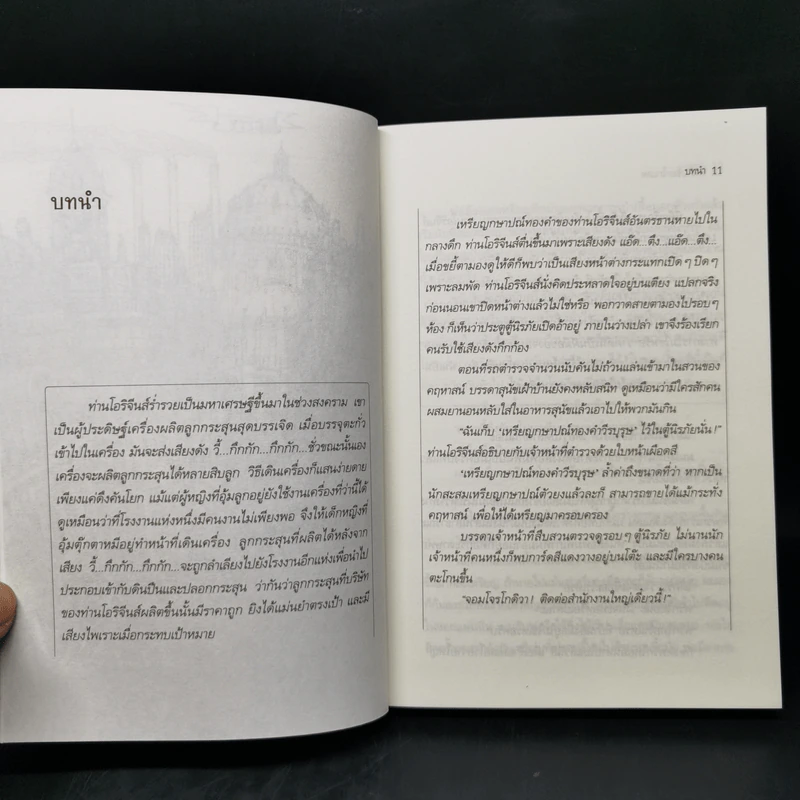 บทนำ
ท่านโอริจีนส์ร่ำรวยเป็นมหาเศรษฐีขึ้นมาในช่วงสงคราม เขา
เป็นผู้ประดิษฐ์เครื่องผลิตลูกกระสุนสุดบรรเจิด เมื่อบรรจุตะกั่ว
เข้าไปในเครื่อง มันจะส่งเสียงดัง วี้...กึกกัก...กึกกัก...ชั่วขณะนั้นเอง
เครื่องจะผลิตลูกกระสุนได้หลายสิบลูก วิธีเดินเครื่องก็แสนง่ายดาย
เพียงแค่ดึงคันโยก แม้แต่ผู้หญิงที่อุ้มลูกอยู่ยังใช้งานเครื่องที่ว่านี้ได้
ดูเหมือนว่าที่โรงงานแห่งหนึ่งมีคนงานไม่เพียงพอ จึงให้เด็กหญิงที่
อุ้มตุ๊กตาหมีอยู่ทำหน้าที่เดินเครื่อง ลูกกระสุนที่ผลิตได้หลังจาก
เสียง วี้...กึกกัก...กึกกัก...จะถูกลำเลียงไปยังโรงงานอีกแห่งเพื่อนำไป
ประกอบเข้ากับดินปืนและปลอกกระสุน ว่ากันว่าลูกกระสุนที่บริษัท
ของท่านโอริจีนส์ผลิตขึ้นนั้นมีราคาถูก ยิงได้แม่นยำตรงเป้า และมี
เสียงไพเราะเมื่อกระทบเป้าหมาย
บทนำ 11
เหรียญกษาปณ์ทองคำของท่านโอริจีนส์อันตรธานหายไปใน
กลางดึก ท่านโอริจีนส์ตื่นขึ้นมาเพราะเสียงดัง แอ๊ด...ตึง...แอ๊ด...ตึง...
เมื่อขยี้ตามองดูให้ดีก็พบว่าเป็นเสียงหน้าต่างกระแทกเปิดๆ ปิดๆ
เพราะลมพัด ท่านโอริจีนส์นั่งคิดประหลาดใจอยู่บนเตียง แปลกจริง
ก่อนนอนเขาปิดหน้าต่างแล้วไม่ใช่หรือ พอกวาดสายตามองไปรอบๆ
ห้อง ก็เห็นว่าประตูตู้นิรภัยเปิดอ้าอยู่ ภายในว่างเปล่า เขาจึงร้องเรียก
คนรับใช้เสียงดังกึกก้อง
ตอนที่รถตำรวจจำนวนนับคันไม่ถ้วนแล่นเข้ามาในสวนของ
คฤหาสน์ บรรดาสุนัขเฝ้าบ้านยังคงหลับสนิท ดูเหมือนว่ามีใครสักคน
ผสมยานอนหลับใส่ในอาหารสุนัขแล้วเอาไปให้พวกมันกิน
“ฉันเก็บ ‘เหรียญกษาปณ์ทองคำวีรบุรุษ’ ไว้ในตู้นิรภัยนั่น!”
ท่านโอริจีนส์อธิบายกับเจ้าหน้าที่ตำรวจด้วยใบหน้าเผือดสี
‘เหรียญกษาปณ์ทองคำวีรบุรุษ’ ล้ำค่าถึงขนาดที่ว่า หากเป็น
นักสะสมเหรียญกษาปณ์ตัวยงแล้วละก็ สามารถขายได้แม้กระทั่ง
คฤหาสน์ เพื่อให้ได้เหรียญมาครอบครอง
บรรดาเจ้าหน้าที่สืบสวนตรวจดูรอบๆ ตู้นิรภัย ไม่นานนัก
เจ้าหน้าที่คนหนึ่งก็พบการ์ดสีแดงวางอยู่บนโต๊ะ และมีใครบางคน
ตะโกนขึ้น
“จอมโจรโกดิวา! ติดต่อสำนักงานใหญ่เดี๋ยวนี้!”